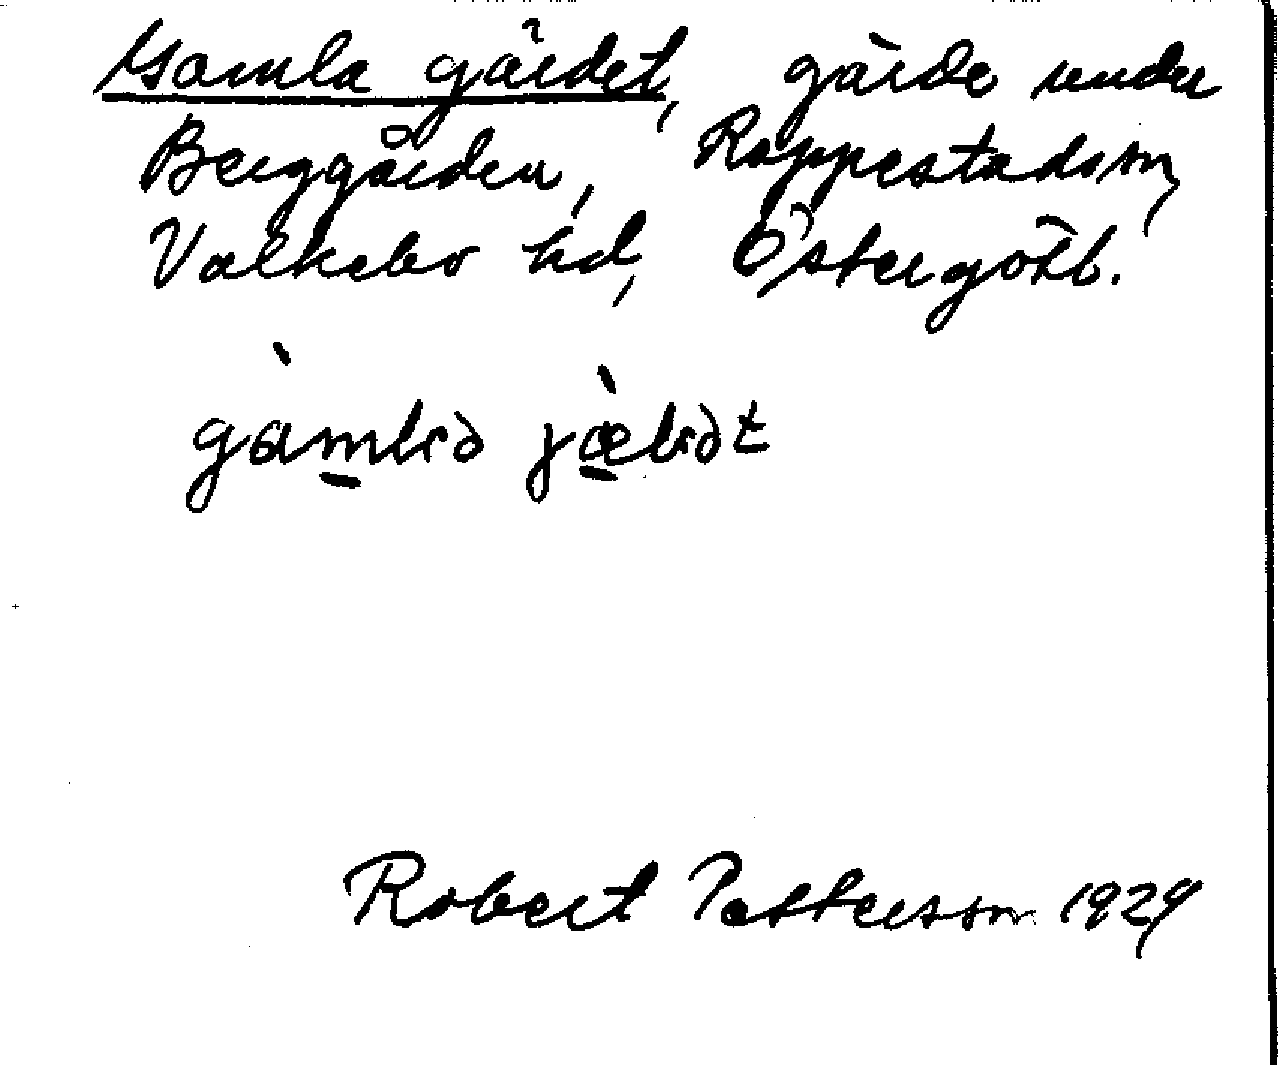 Gamla gärdet, gärde under
Berggården, Rappestadssn,
Valkebo hd, Östergötl.
Robert Petterson 1929